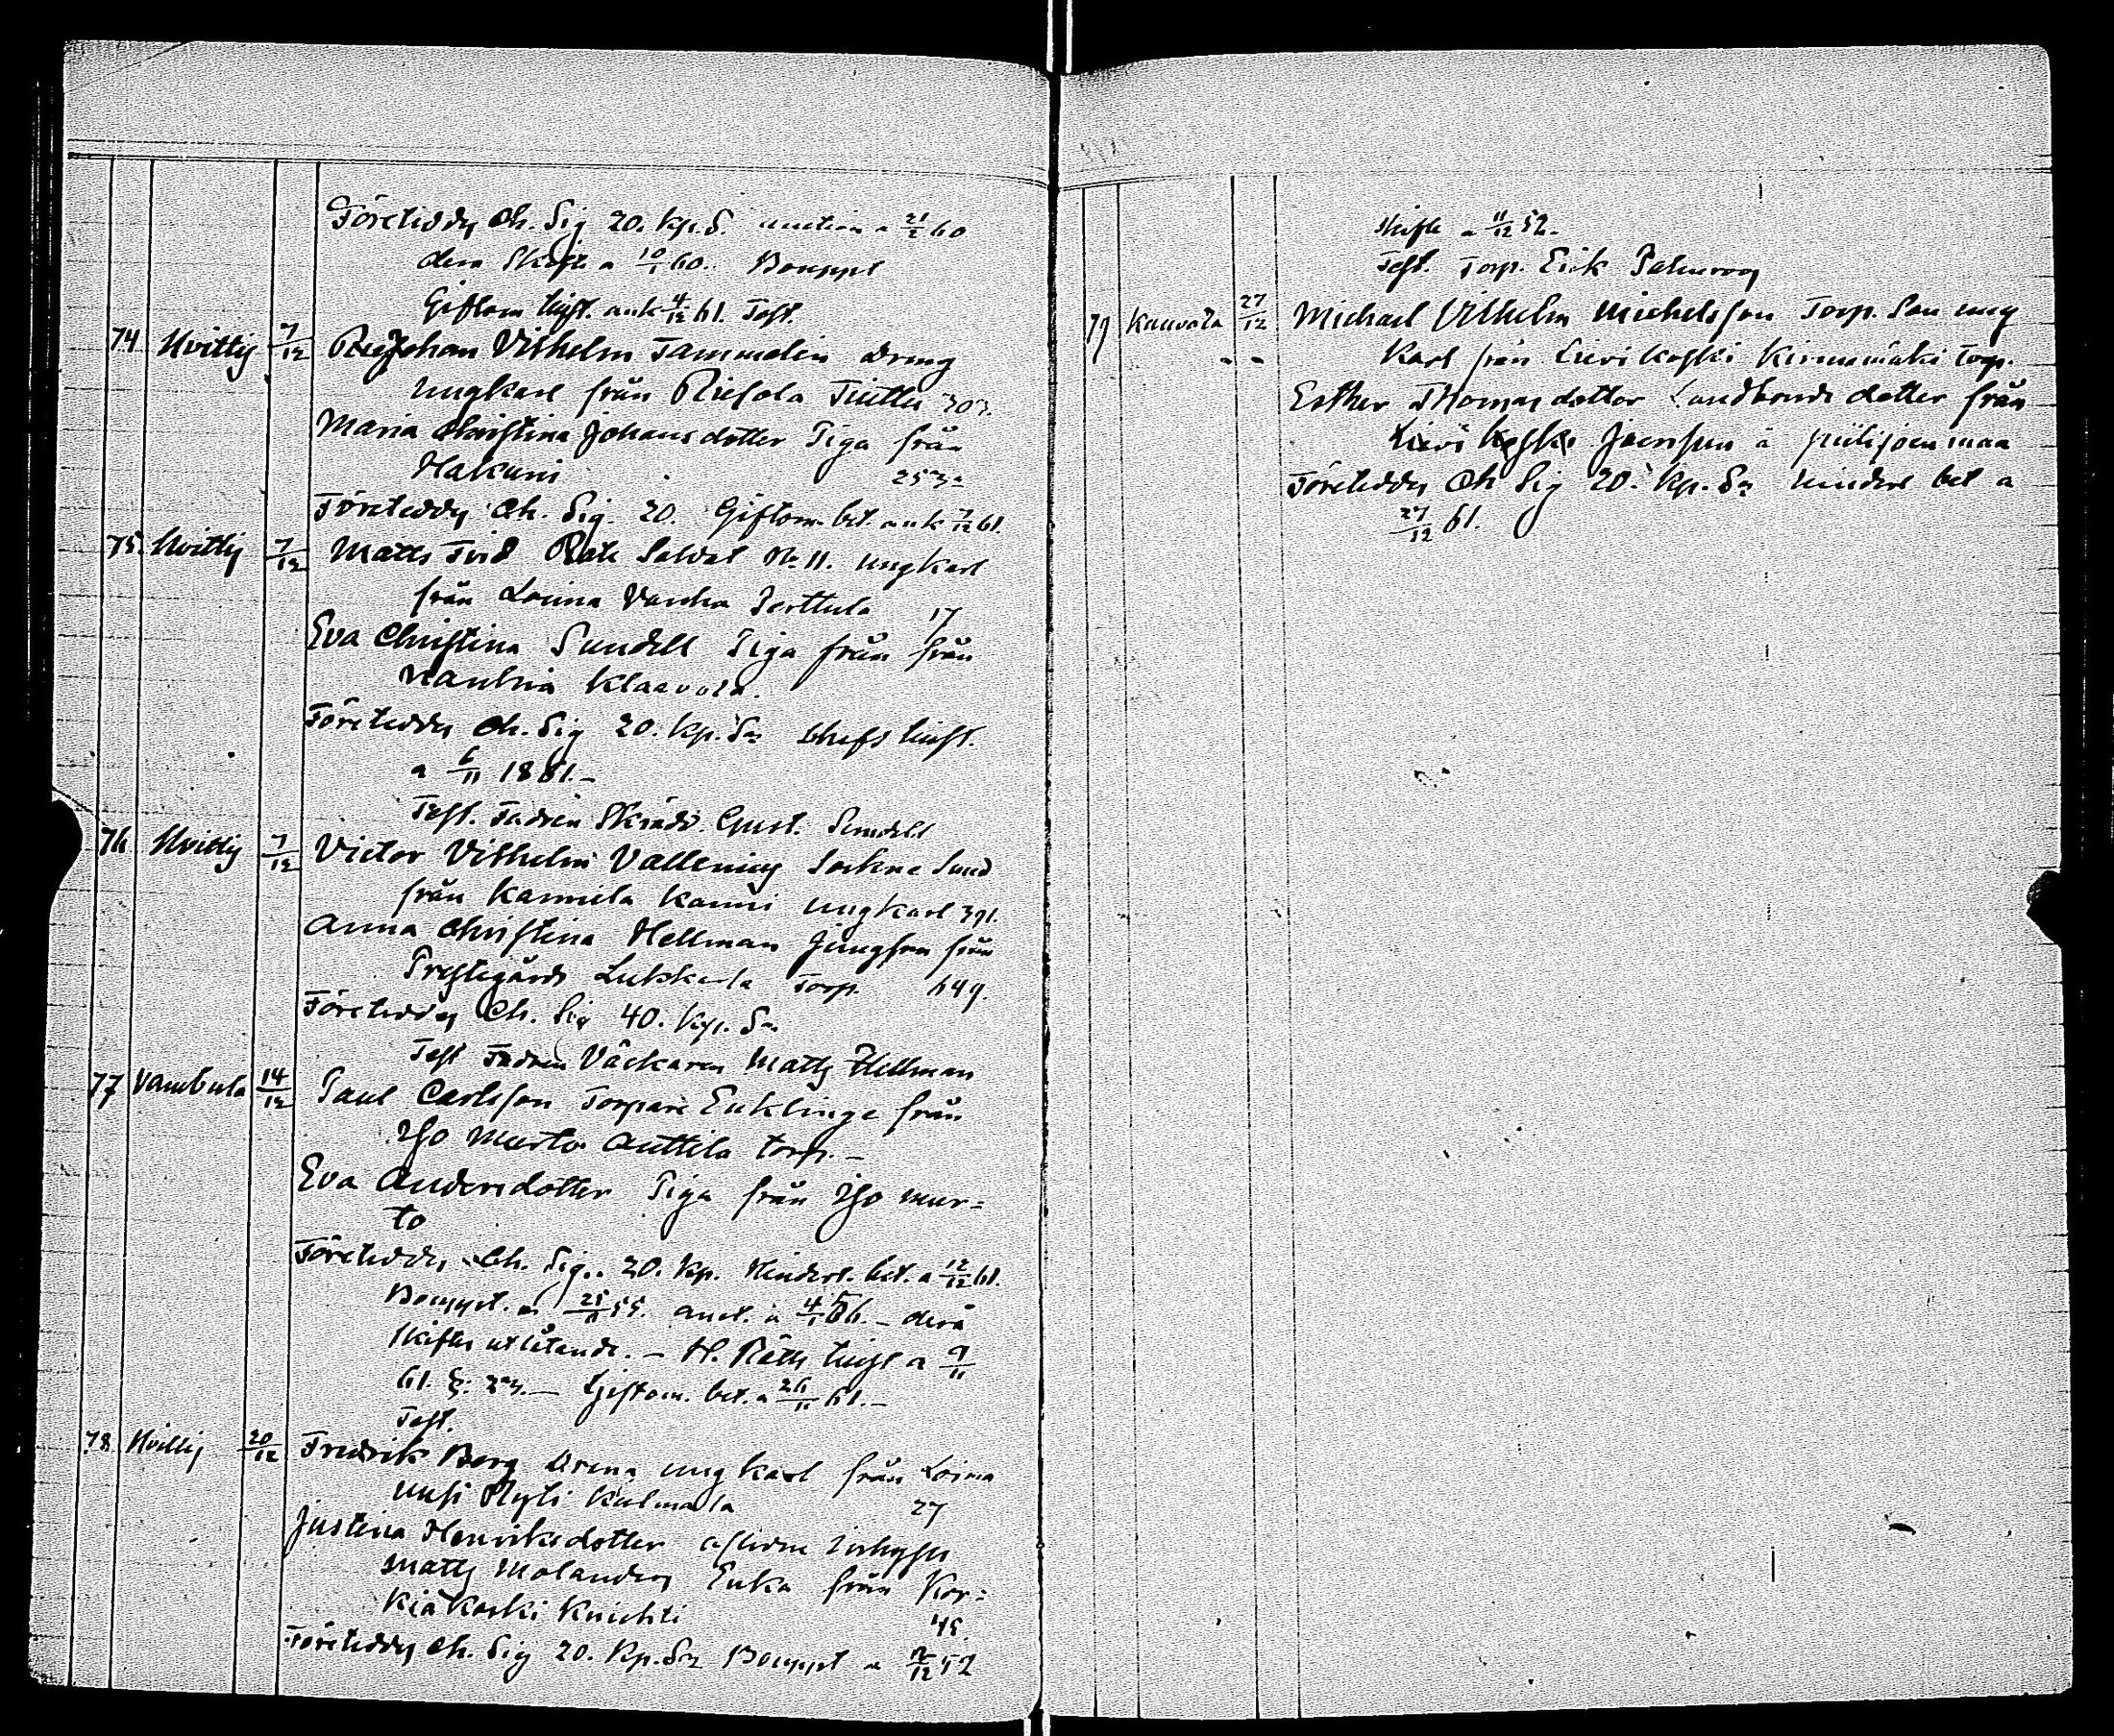 Företeddes Ch. Sig 20. kp. S. auction a 21/2 60
dera Skifte a 10/1 60. Bouppt
Giftom tingt. ank 4/12 61. Test.
74 Hvittis 7/12 Johan Vilhelm Tammelin dreng
ungkarl från Riesola Tiitta 303.
Maria Christina Johansdotter Piga från
Hakuni 253.
Företeddes Ch. Sig. 20. Giftom. bet. ank 7/12 61.
75. Hvittis 7/12 Matts Frid Rote Soldat No 11. ungkarl
från Loima Vanha Perttula 17
Eva Christina Sundell Piga från från
Nanhia Klaavola.
Företeddes Ch. Sig 20. kp. Sr
a 6/11 1861.-
Test. Fadren Skrädd. Gust. Sundell
76 Hvittis 7/12 Victor Vilhelm Vallenius Sockne Smed
från Kannila Kanni ungkarl 391.
Anna Christina Hellman Jungfru från
Prestegårds Lukkarla Torp. 649.
Företeddes Ch. Sig 40. kp. Sr.
Test Fadren Väckaren Matts Hellman
77 Vambula 14/12 Paul Carlsson Torpare Enklinge från
Iso Murto Anttila torp.-
Eva Andersdotter Piga från Iso mur=
to
Företeddes Ch. Sig.. 20. kp. Hindersl. bet. a 12/12 61.
Bouppt. a 25/11 55. auct. a 4/1 56. - derå
skiftes utlåtande. - H. Rätts tingt a 9/11
61. §: 23. - Giftom. bet. a 26/11 61.-
Test.
78 Hvittis 20/12 Fredrik Berg dreng ungkarl från Loima
uusi Ryti Kulmala 27
Justina Henriksdotter aflidne Inhyses
Matts Molanders Enka från Kor=
kiäkoski Knichti 45.
Företeddes Ch. Sig 20. Kp. Sr Bouppt a 2/12 52
skifte a 11/12 52.-
Test. Torp. Erik
79 Kauvola 27/12 Michael Vilhelm Michelsson Torp. Son ung
karl från Lievikoski Kirnumäki Torp.
Esther Thomasdotter Landbonde dotter från
Lievikoski Juonsuu å piilijoenmaa
Företeddes Ch Sig 20. kp. Sr hindersl bet a
27/12 61.